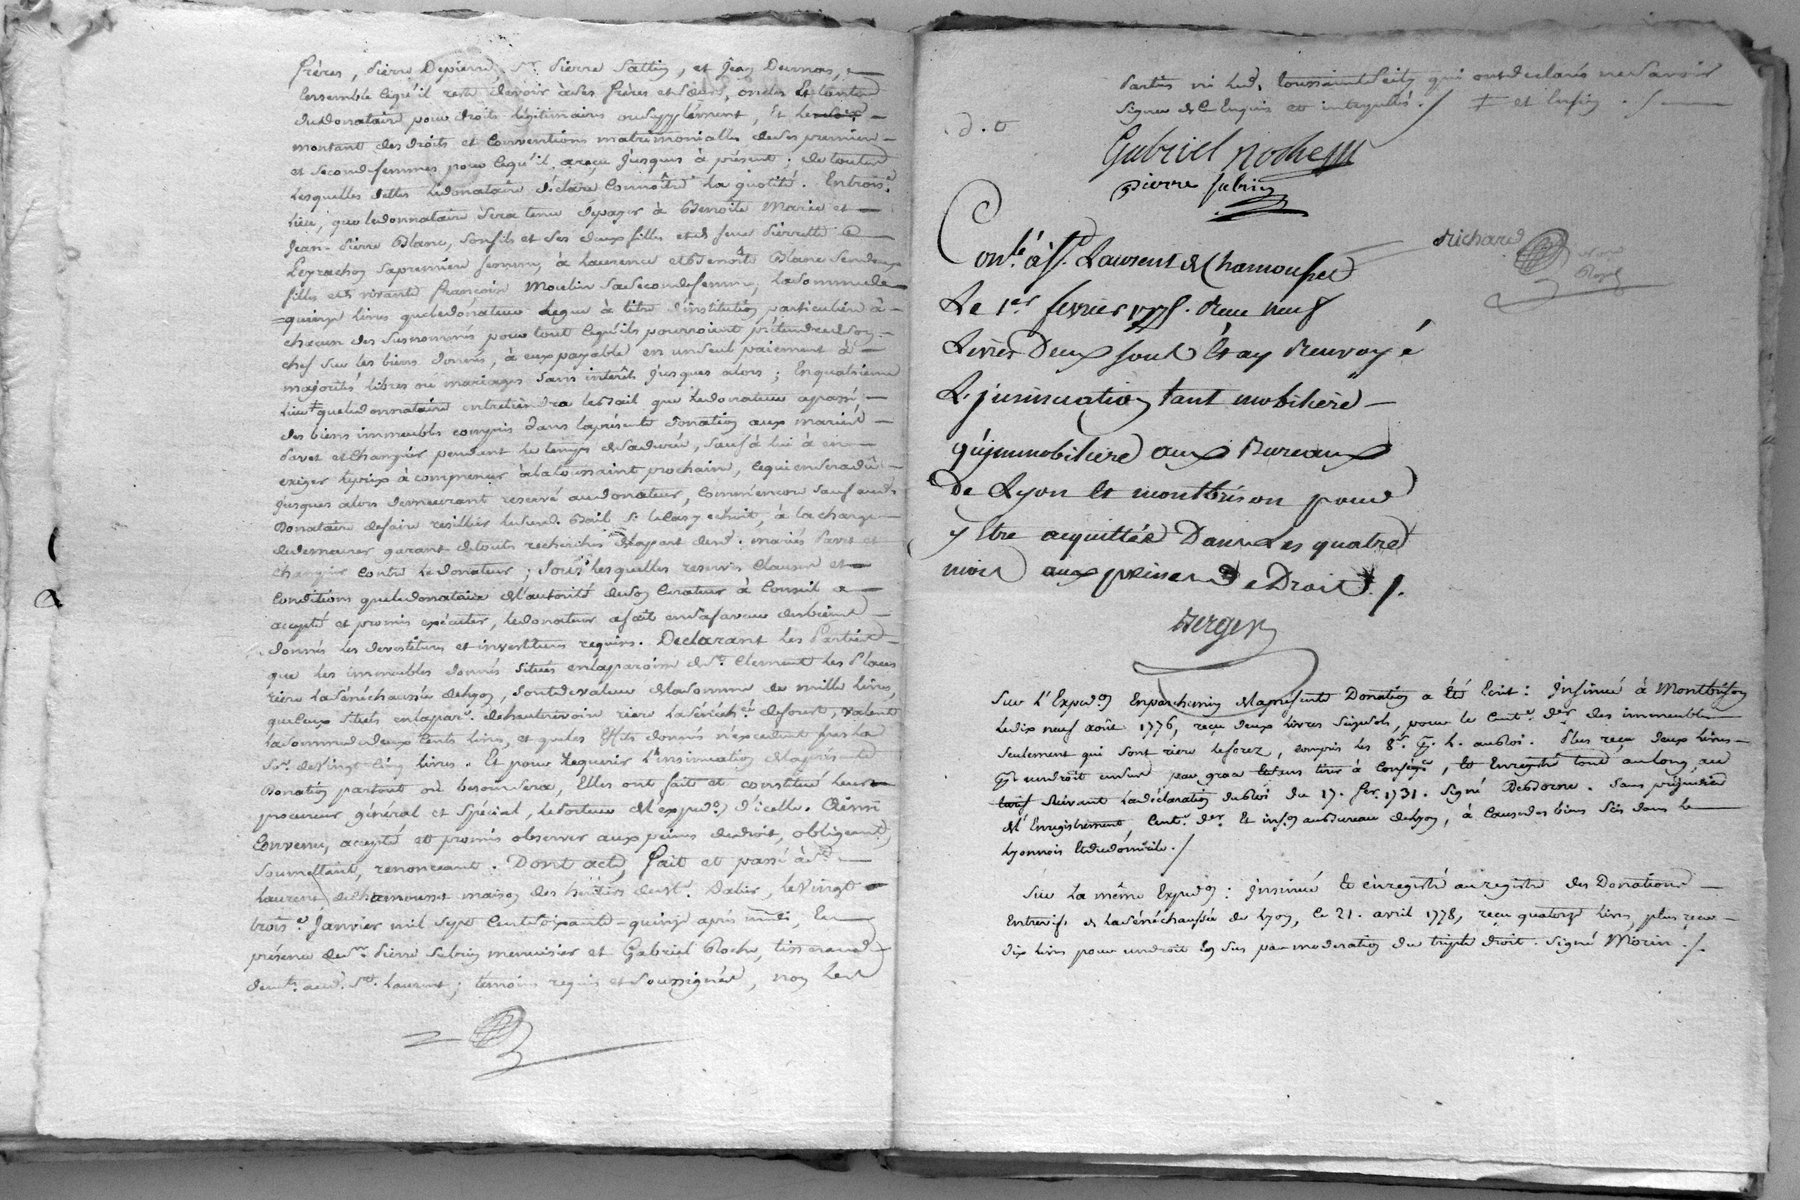 frères, pierre Depierre, Sr. pierre Sattin, et Jean Dumas,
l'ensemble ce qu'il reste devoir à ses frères et soeurs, oncles et tantes
du donataire pour droits légitimaires ou supplément, et le
montant des droits et conventions matrimonialles de ses premiere
et seconde femmes pour ce qu'il a reçu jusques à présent ; de toutes
lesquelles dettes le donataire déclare connoître la quotité. En trois.e
lieu, que le donnataire sera tenu de payer à Benoite Marie et
Jean-Pierre Blanc, son fils et ses deux filles et de feue pierrette
Leyrachon sa premiere femme, à laurence et Benoîte Blanc ses deux
filles et de vivante françoise Moulin sa seconde femme, la somme de
quinze livres que le donateur legue à titre d'institution particulière à
chacun des susnommés pour tout ce qu'ils pourroient prétendre de son
chef sur les biens donnés, à eux payable en un seul paiement à
majorité libres ou mariages sans intérêts jusques alors ; En quatrieme
lieu ‡ que le donnataire entretiendra le bail que le donateur a passé,
des biens immeubles compris dans la présente donation aux mariés
pavet et Changier pendant le temps de sa durée, sauf à lui à en
exiger le prix à commencer à la toussaint prochain, ce qui en sera dû
jusques alors demeurant reservé au donateur, comm'encor sauf aud.
Donataire de faire resillier led. bail si le cas y echoit, à la charge
de demeurer garant de touts recherches de la part desd. mariés pavet et
Changier contre le donateur ; sous lesquelles reserves clauses et
conditions que le donataire de l'autorité de son Curateur à Conseil a
accepté et promis exécuter, le donateur a fait en sa faveur des biens
donnés les devestitures et investitures requises. Declarant les Parties
que les immeubles donnés situés en la paroisse de St. Clement les Places
rière la sénéchaussée de Lyon, sont de valeur de la somme de mille livres,
que ceux situés en la par.e de hauterivoire rière la sénéch.ée de forest, valent
la somme de deux Cents livres, et que les effets donnés n'excedent pas la
so.e de vingt cinq livres. Et pour requerir l'insinuation de la présente
Donation partout où besoin sera, Elles ont fait et constitué leur
procureur général et spécial, le porteur de l'exped.on d'icelle. Ainsi
Convenu, accepté et promis observer aux peines de droit, obligeant,
soumettant, renonceant. Dont acte, fait et passé à St.
laurent de Chamousset maison des héritiers de Mr. Dalier, le vingt
trois.e Janvier mil sept Cent soixante-quinze après midi, En
présence de Sr. pierre Subrin menuisier et Gabriel Roche, tisserand
dem.ts aud. St. laurent ; temoins requis et soussignés, non les
parties ni led. toussaint qui ont declarés ne savoir
signer de ce Enquis et interpellés. / ‡ et Enfin . /
Gabriel Roche
pierre Subrin
Richard
not.re
Royal
Con.lé à St. Laurent de Chamousset
Le 1er fevrier 1775. Recu neuf
Livres Deux sous Et ay Renvoyé
L'insinuation tant mobiliere
qu'immobiliere aux Bureaux
De Lyon et montbrison pour
y Etre acquittés Dans Les quatre
mois aux peines de Droit. /.
Berger
Sur l'Exped.on En parchemin de la présente Donation a été Ecrit : Insinué à Montbrison
le dix neuf août 1776, reçu deux livres six sols, pour le Cent.e der. des immeubles
seulement qui sont rière le forez, compris les 8 s. p. l. au Roi. Plus reçu deux livres
Suivant la déclaration du Roi du 17. fer. 1731. Signé Debosne. Sans préjudice
de l'Enregistrement, Cent.e der. Et ins.on au bureau de Lyon, à Cause des biens sis dans le
Lyonnois Et du domicile. /
Sur la même Exped.on : Insinué Et enregistré au registre des Donations
Entrevifs de la sénéchaussée de Lyon, ce 21. avril 1778, reçu quatorze livres, plus reçu
dix livres pour un droit En sus par moderation du triple droit. Signé Morin. /.